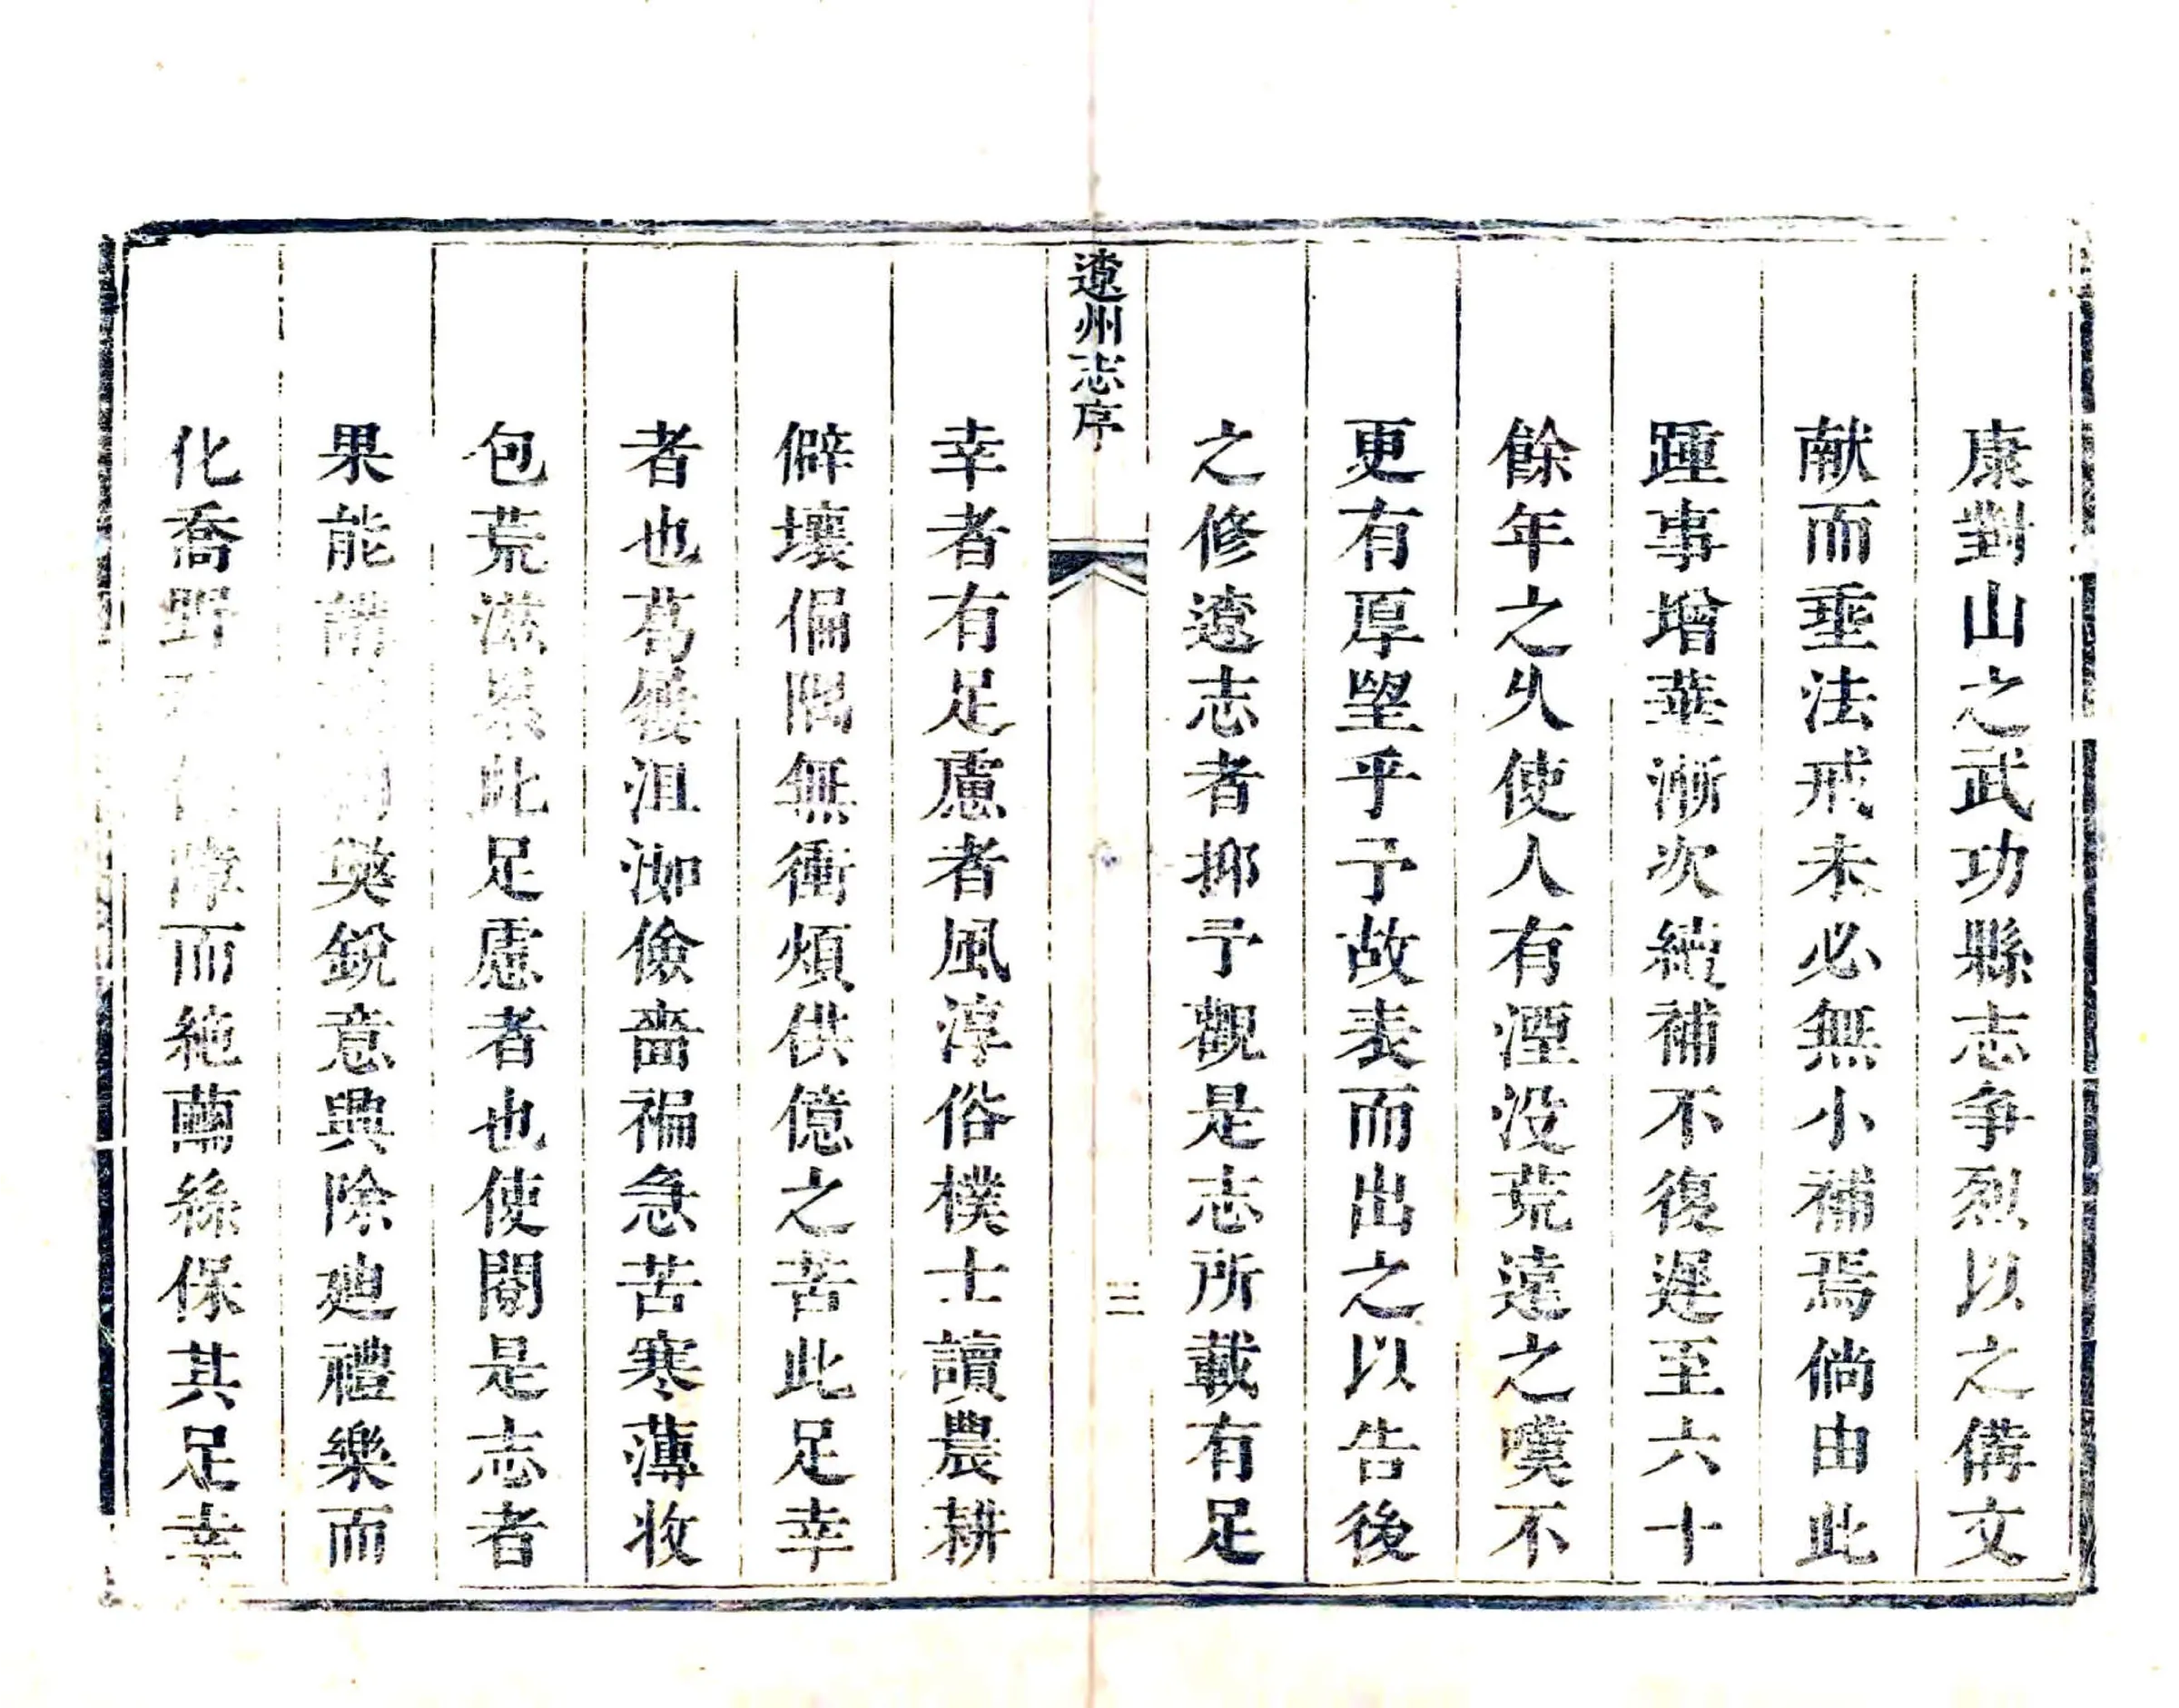 康對山之武功縣志争烈以之備文
献而垂法戒未必無小補焉倘由此
踵事增華漸次續補不復遲至六十
餘年之久使人有湮没荒遠之嘆不
更有厚望乎予故表而出之以告後
之修遼志者抑予觀是志所載有足
遼州志序
三
幸者有足慮者風淳俗樸士讀農耕
僻壤偏隅無衝煩供億之苦此足幸
者也葛屨沮洳儉嗇褊急苦寒薄收
包荒滋累此足慮者也使閱是志者
果能講奥銳意興除廸禮樂而
化喬野障而絶繭絲保其足幸